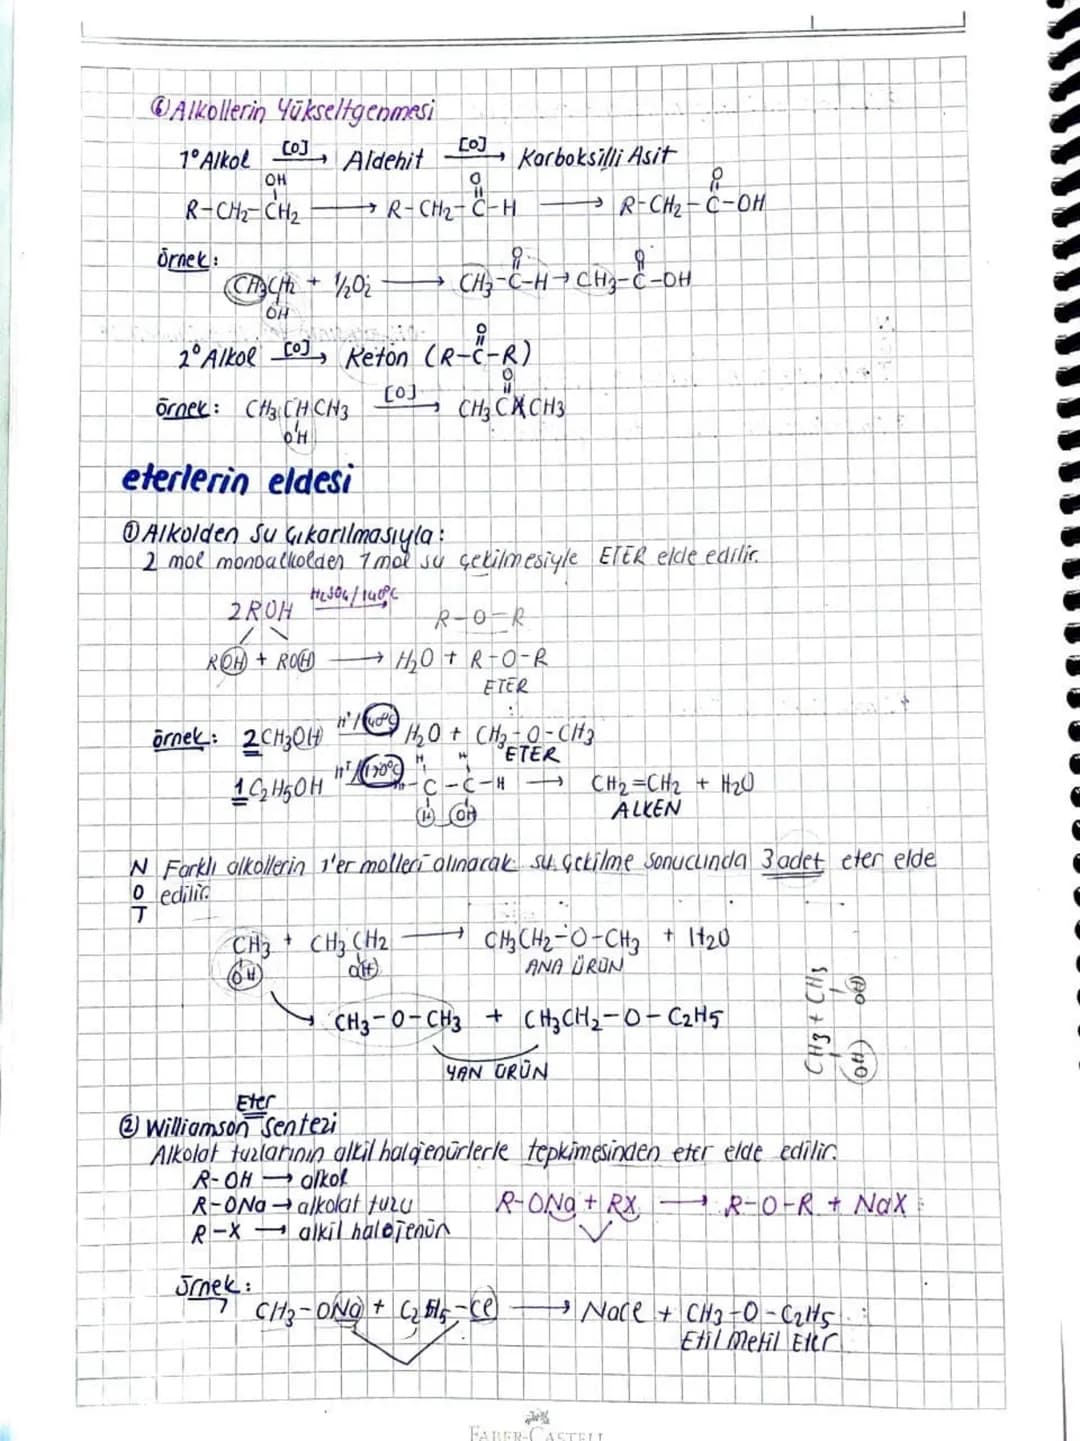 ⑥ Alkollerin Yükseltgenmesi
1° Alkol [O]→ Aldehit [O]→ Karboksilli Asit
OH O O
R-CH₂-CH₂ → R-CH₂-C-H → R-CH₂-C-OH
örnek: O O
CH₃CH₂ + ½O₂ → CH₃-C-H → CH₃-C-OH
OH
O
2° Alkol [O]→ Keton (R-C-R)
O
örnek: CH₃CHCH₃ [O]→ CH₃CCH₃
OH
eterlerin eldesi
① Alkolden Su Çıkarılmasıyla:
2 mol monoalkolden 1 mol su çekilmesiyle ETER elde edilir.
2ROH H₂SO₄/140°C→ R-O-R
ROH + ROH → H₂O + R-O-R
ETER
örnek: 2CH₃OH H⁺/140°C H₂O + CH₃-O-CH₃
ETER
H H
1C₂H₅OH H⁺/170°C H-C-C-H → CH₂=CH₂ + H₂O
H OH ALKEN
NOT Farklı alkollerin 1'er molleri alınacak su çekilme sonucunda 3 adet eter elde
edilir.
CH₃ + CH₃CH₂ → CH₃CH₂-O-CH₃ + H₂O
OH OH ANA ÜRÜN
CH₃-O-CH₃ + CH₃CH₂-O-C₂H₅
YAN ÜRÜN
CH₃ + CH₃
OH OH
Eter
② Williamson Sentezi
Alkolat tuzlarının alkil halojenürlerle tepkimesinden eter elde edilir.
R-OH → alkol
R-ONa → alkolat tuzu R-ONa + RX → R-O-R + NaX
R-X → alkil halojenür
örnek:
CH₃-ONa + C₂H₅-Cl → NaCl + CH₃-O-C₂H₅
Etil Metil Eter
FABER-CASTELL